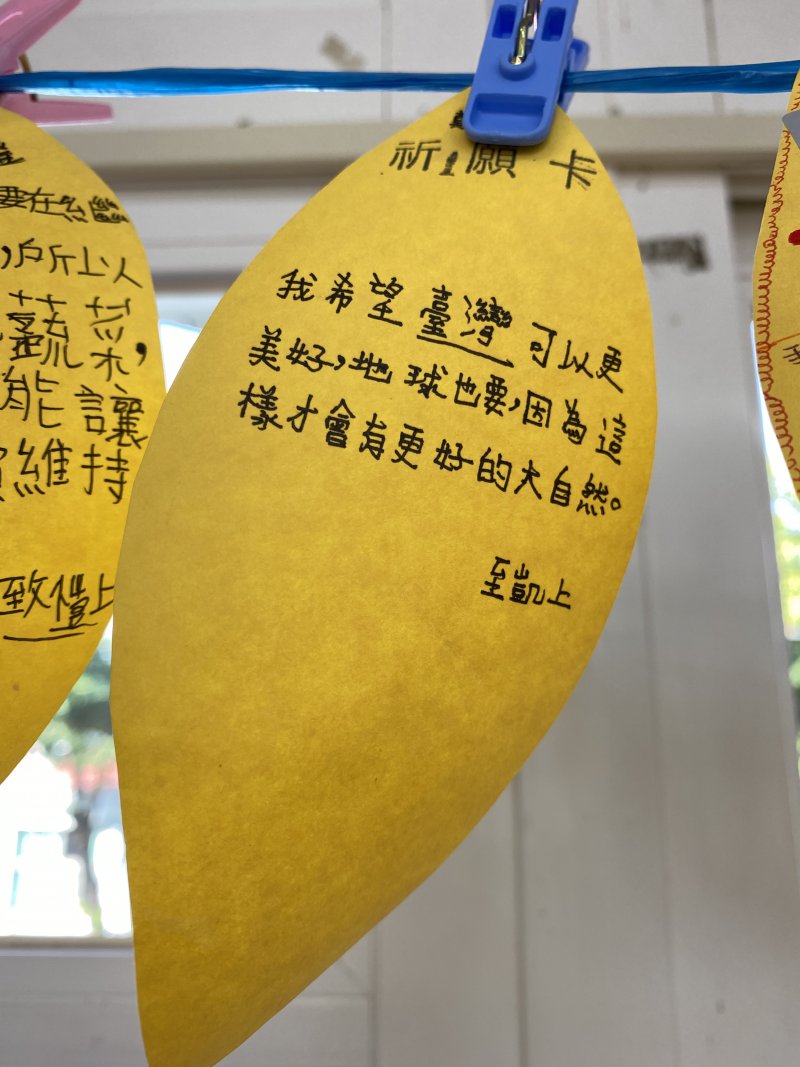 祈願卡
我希望臺灣可以更
美好,地球也要,因為這
樣才會有更好的大自然。
至凱上
要在
,所以
蔬菜,
能讓
維持
致禮上